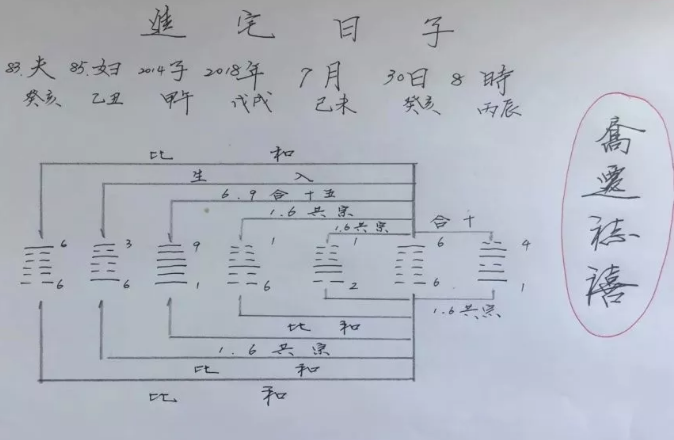 進宅日子
83.夫 85.妇 2014子 2018年 7月 30日 8時
癸亥 乙丑 甲午 戊戌 己未 癸亥 丙辰
喬遷誌禧
比 和
生 入
6.9合十五
1.6共宗
1.6共宗
合十
6 3 9 1 1 6 4
6 6 1 6 2 6 1
1.6共宗
比 和
1.6共宗
比 和
比 和